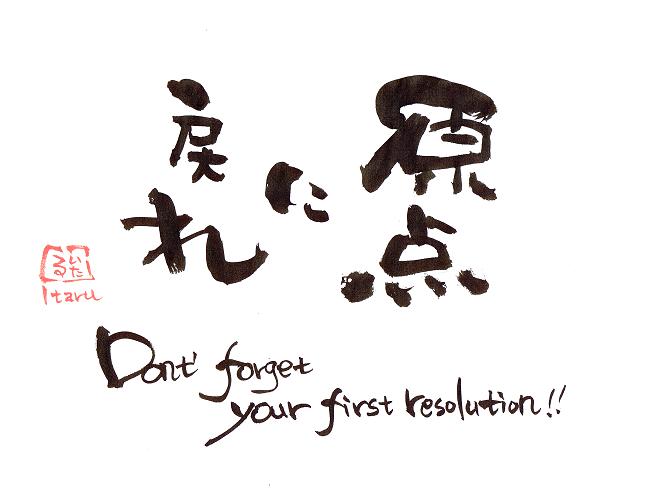 原点
に
戻れ
いたる
Itaru
Dont' forget
your first resolution!!